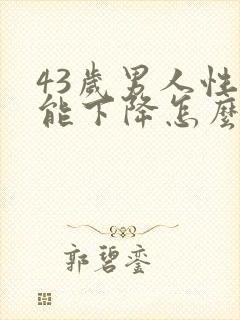 43歲男人性
能下降怎麼
郭碧銮